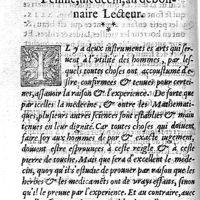 naire Lecteur.
L y a deux instruments es arts qui ser-
uent à l'vtilité des hommes, par les-
quels toutes choses ont accoustumé d'e-
stre confirmees & tenues pour certai-
nes, assauoir la raison & l'experience. De sorte que
par icelles la medecine, & outre les Mathemati-
ques, plusieurs autres sciences sont establies & main
tenues en leur dignité. Car toutes choses qui doiuent
faire foy aux hommes de par & exacte iugement,
doiuent estre esprouuees à ceste reigle & à ceste
pierre de touche. Mais que sera d'excellent le mede-
cin, quoy qu'il s'estudie de prouuer par raison que les
herbes & les medicamēts ont de vrays effaits, sinon
qu'il le preuue par l'experience. Et au contraire, auec